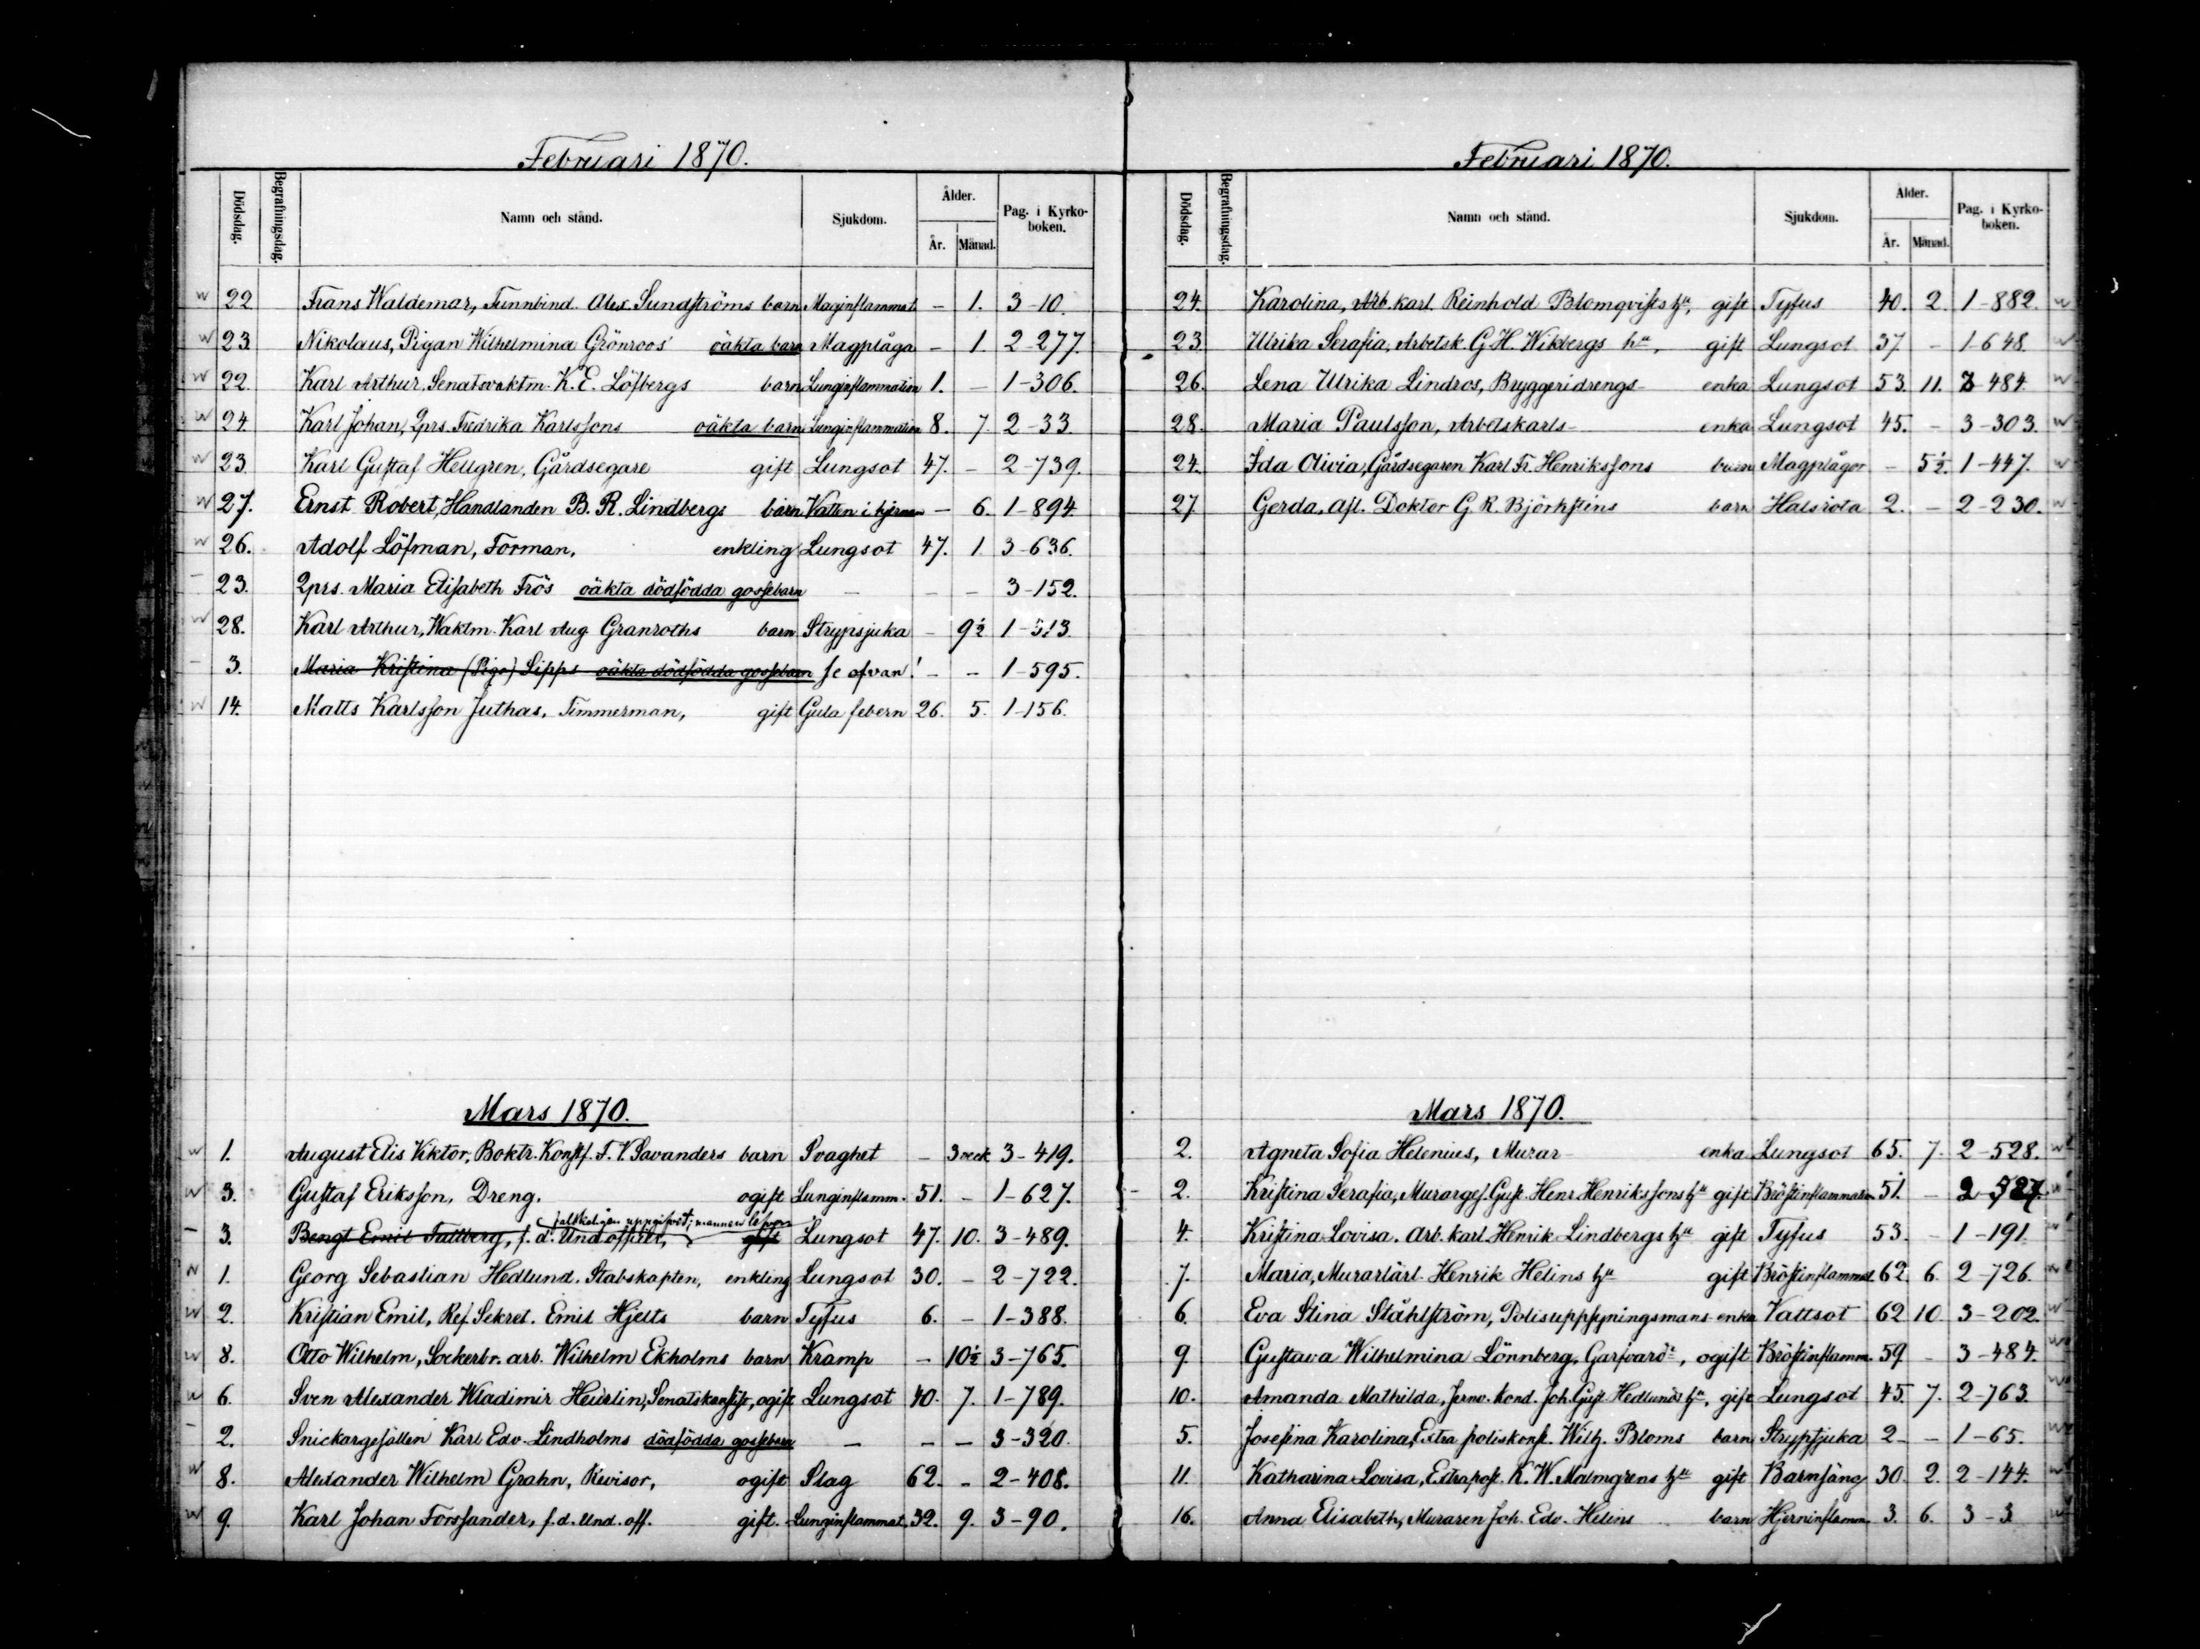 Februari 1870.
Dödsdag. Begrafningsdag. Namn och stånd. Sjukdom. Ålder. År. Månad. Pag. i Kyrkoboken.
w 22 Frans Waldemar, Tunnbind. Alex. Sundströms barn Maginflammat. – 1. 3-10.
w 23. Nikolaus, Pigan Wilhelmina Grönroos' oäkta barn Magplåga – 1. 2-277.
w 22. Karl Arthur, Senatsvaktm. K. E. Löfbergs barn Lunginflammation 1. – 1-306.
w 24. Karl Johan, Qprs. Fredrika Karlssons oäkta barn Lunginflammation 8. 7. 2-33.
w 23. Karl Gustaf Hellgren, Gårdsegare gift Lungsot 47. – 2-739.
w 27. Ernst Robert, Handlanden B. R. Lindbergs barn Vatten i hjernan – 6. 1-894.
w 26. Adolf Löfman, Forman, enkling Lungsot 47. 1. 3-636.
– 23. Qprs. Maria Elisabeth Frös oäkta dödfödda gossebarn – – – 3-152.
w 28. Karl Arthur, Waktm. Karl Aug. Granroths barn Strypsjuka – 9½ 1-513.
– 3. Maria Kristina (Piga) Sipps oäkta dödfödda gossebarn se ofvan! – – 1-595.
w 14. Matts Karlsson Juthas, Timmerman, gift Gula febern 26. 5. 1-156.
Mars 1870.
w 1. August Elis Viktor, Boktr. Konstf. T. V. Savanders barn Svaghet – 3 veck. 3-419.
w 3. Gustaf Eriksson, Dreng. ogift Lunginflamm. 51. – 1-627.
– 3. Bengt Emil Tallberg, f. d. Und.officer, gift Lungsot 47. 10. 3-489.
w 1. Georg Sebastian Hedlund. Stabskapten, enkling Lungsot 30. – 2-722.
w 2. Kristian Emil, Ref. Sekret. Emil Hjelts barn Tyfus 6. – 1-388.
w 8. Otto Wilhelm, Sockerbr. arb. Wilhelm Ekholms barn Kramp – 10½ 3-765.
w 6. Sven Alexander Wladimir Heurlin, ogift Lungsot 40. 7. 1-789.
– 2. Snickargesällen Karl Edv. Lindholms dödfödda gossebarn – – – 3-320.
w 8. Alexander Wilhelm Grahn, Revisor, ogift Slag 62. – 2-408.
w 9. Karl Johan Forssander, f. d. Und. off. gift. Lunginflammat. 32. 9. 3-90.
Februari 1870.
Dödsdag. Begrafningsdag. Namn och stånd. Sjukdom. Ålder. År. Månad. Pag. i Kyrkoboken.
24. Karolina, Arb.karl. Reinhold Blomqvists hu, gift Tyfus 40. 2. 1-882. w
23. Ulrika Serafia, Arbetsk. G. H. Wikbergs hu, gift Lungsot 37. – 1-648. w
26. Lena Ulrika Lindros, Bryggeridrengs- enka Lungsot 53. 11. 3-484. w
28. Maria Paulsson, Arbetskarls- enka Lungsot 45. – 3-303. w
24. Ida Olivia, Gårdsegaren Karl Fr. Henrikssons barn Magplågor – 5½. 1-447. w
27. Gerda, Afl. Doktor G. R. Björkstens barn Halsröta 2. – 2-230. w
Mars 1870.
2. Agneta Sofia Helenius, Murar- enka Lungsot 65. 7. 2-528. w
– 2. Kristina Serafia, Murarges. Gust. Henr. Henrikssons hu gift Bröstinflammation 51. – 2-527. w
4. Kristina Lovisa. Arb. karl. Henrik Lindbergs hu gift Tyfus 53. – 1-191. w
7. Maria, Murarlärl. Henrik Helins hu gift Bröstinflammat. 62. 6. 2-726. w
6. Eva Stina Ståhlström, Polisuppsyningsmans enka Vattsot 62 10. 3-202. w
9. Gustava Wilhelmina Lönnberg, ogift Bröstinflamm. 59. – 3-484. w
10. Amanda Mathilda, Jernv. kond. Joh. Gust. Hedlunds hu, gift Lungsot 45. 7. 2-763. w
5. Josefina Karolina, Extra poliskonst. Wilh. Bloms barn Strypsjuka 2 – 1-65. w
11. Katharina Lovisa, K. W. Malmgrens hu gift Barnsäng 30. 2. 2-144. w
16. Anna Elisabeth, Muraren Joh. Edv. Helins barn Hjerninflamm. 3. 6. 3-3. w